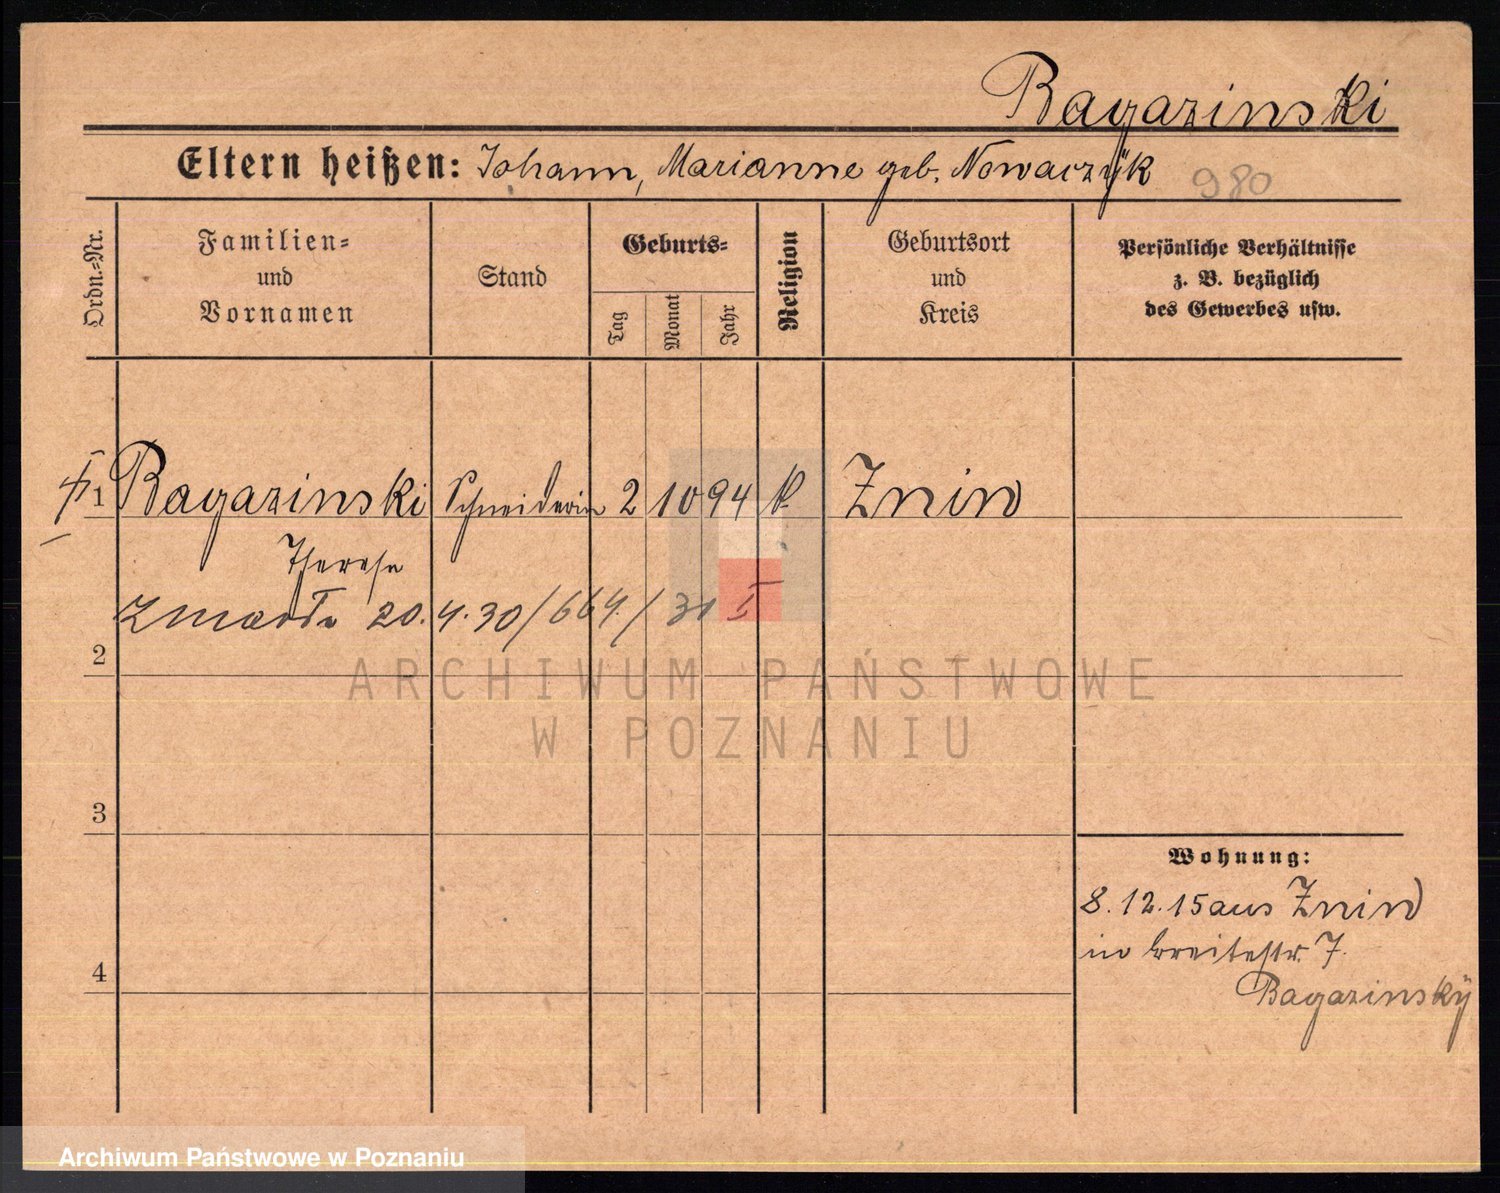 Bagazinski
Eltern heißen: Johann, Marianne geb. Nowaczÿk
980
Ordn.=Nr.
Familien=
und
Vornamen
Stand
Geburts=
Tag
Monat
Jahr
Religion
Geburtsort
und
Kreis
Persönliche Verhältnisse
z. B. bezüglich
des Gewerbes usw.
1 Bagazinski Schneiderin 2 10 94 k Znin
Therese
zmarła 20.4.30/664/31 I
2
3
4
Wohnung:
8.12.15 aus Znin
in Breitestr. 7.
Bagazinskÿ
ARCHIWUM PAŃSTWOWE
W POZNANIU
Archiwum Państwowe w Poznaniu